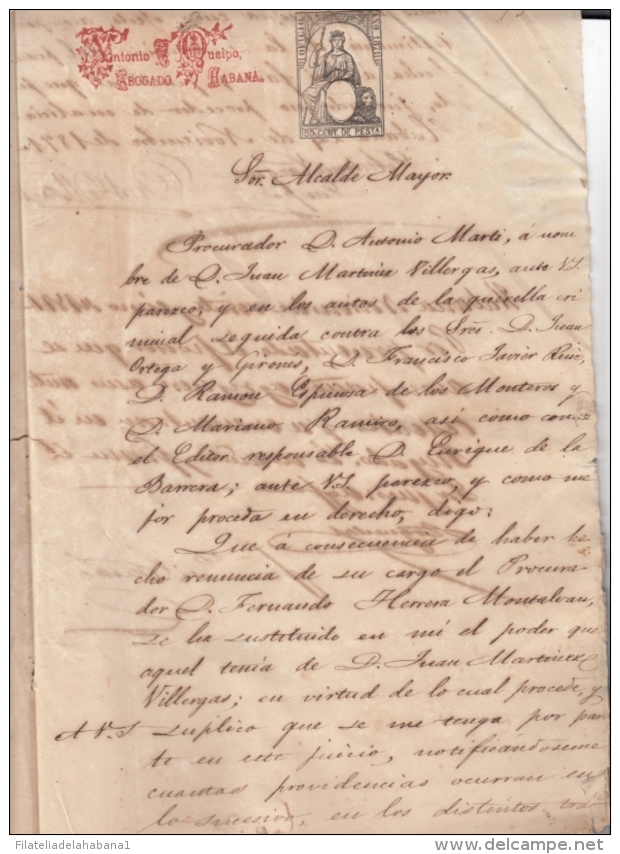 Antonio Queipo,
ABOGADO HABANA.
50 CENT DE PESTA
Sor. Alcalde Mayor.
Procurador D. Antonio Marti, á nom
bre de D. Juan Martinez Villergas, ante V.S.
parezco, y en los autos de la querella cri
minal seguida contra los Sres. D. Juan
Ortega y Girones, D. Francisco Javier Ruiz,
D. Ramon Espinosa de los Monteros y
D. Mariano Ramiro, así como con
el Editor responsable D. Enrique de la
Barrera; ante V.S. parezco, y como me
jor proceda en derecho, digo:
Que á consecuencia de haber he
cho renuncia de su cargo el Procura
dor D. Fernando Herrera Montalvan,
se ha sustituido en mí el poder que
aquel tenía de D. Juan Martinez
Villergas; en virtud de lo cual procede, y
A V.S suplico que se me tenga por par
te en este juicio, notificándoseme
cuantas providencias ocurran en
lo sucesivo, en los distintos trá
© Filateliadelahabana1
delcampe.net